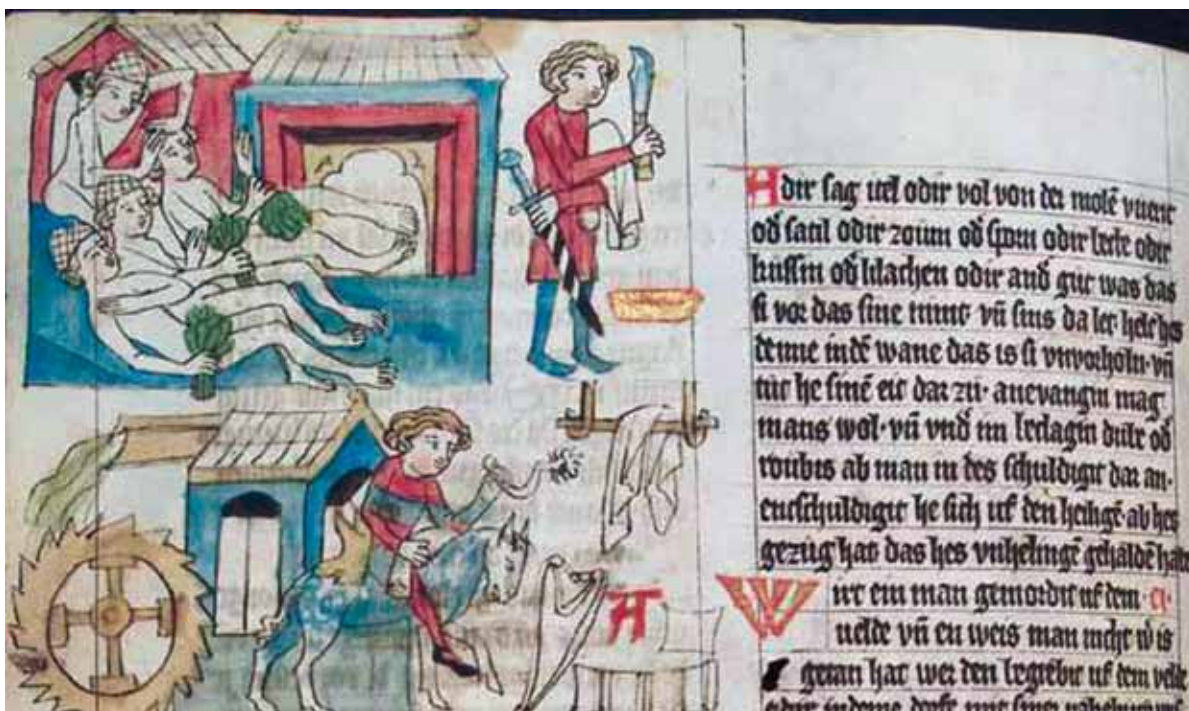 A
Adir sag itel odir vol von der molē vuert
od̄ satil odir zoum od̄ sporn odir decke odir
kussin od̄ lilachen odir and̄ gut was das
si vor das sine nimt vn̄ sins da let helt hes
denne in dē wane das is si vnvorholn vn̄
tut he sinē eit dar zu· anevangin mag
mans wol· vn̄ vnd̄ im dube od̄
roubis ab man in des schuldigit dar an·
entschuldigit he sich uf den heiligē ab hes
gezug hat das hes vnhelingē gehaldē habe
Wirt ein man gemordit uf dem·
uelde vn̄ en weis man nicht w̄ is
getan hat wer den begrebit uf dem velde
odir in deme dorfe mit siner